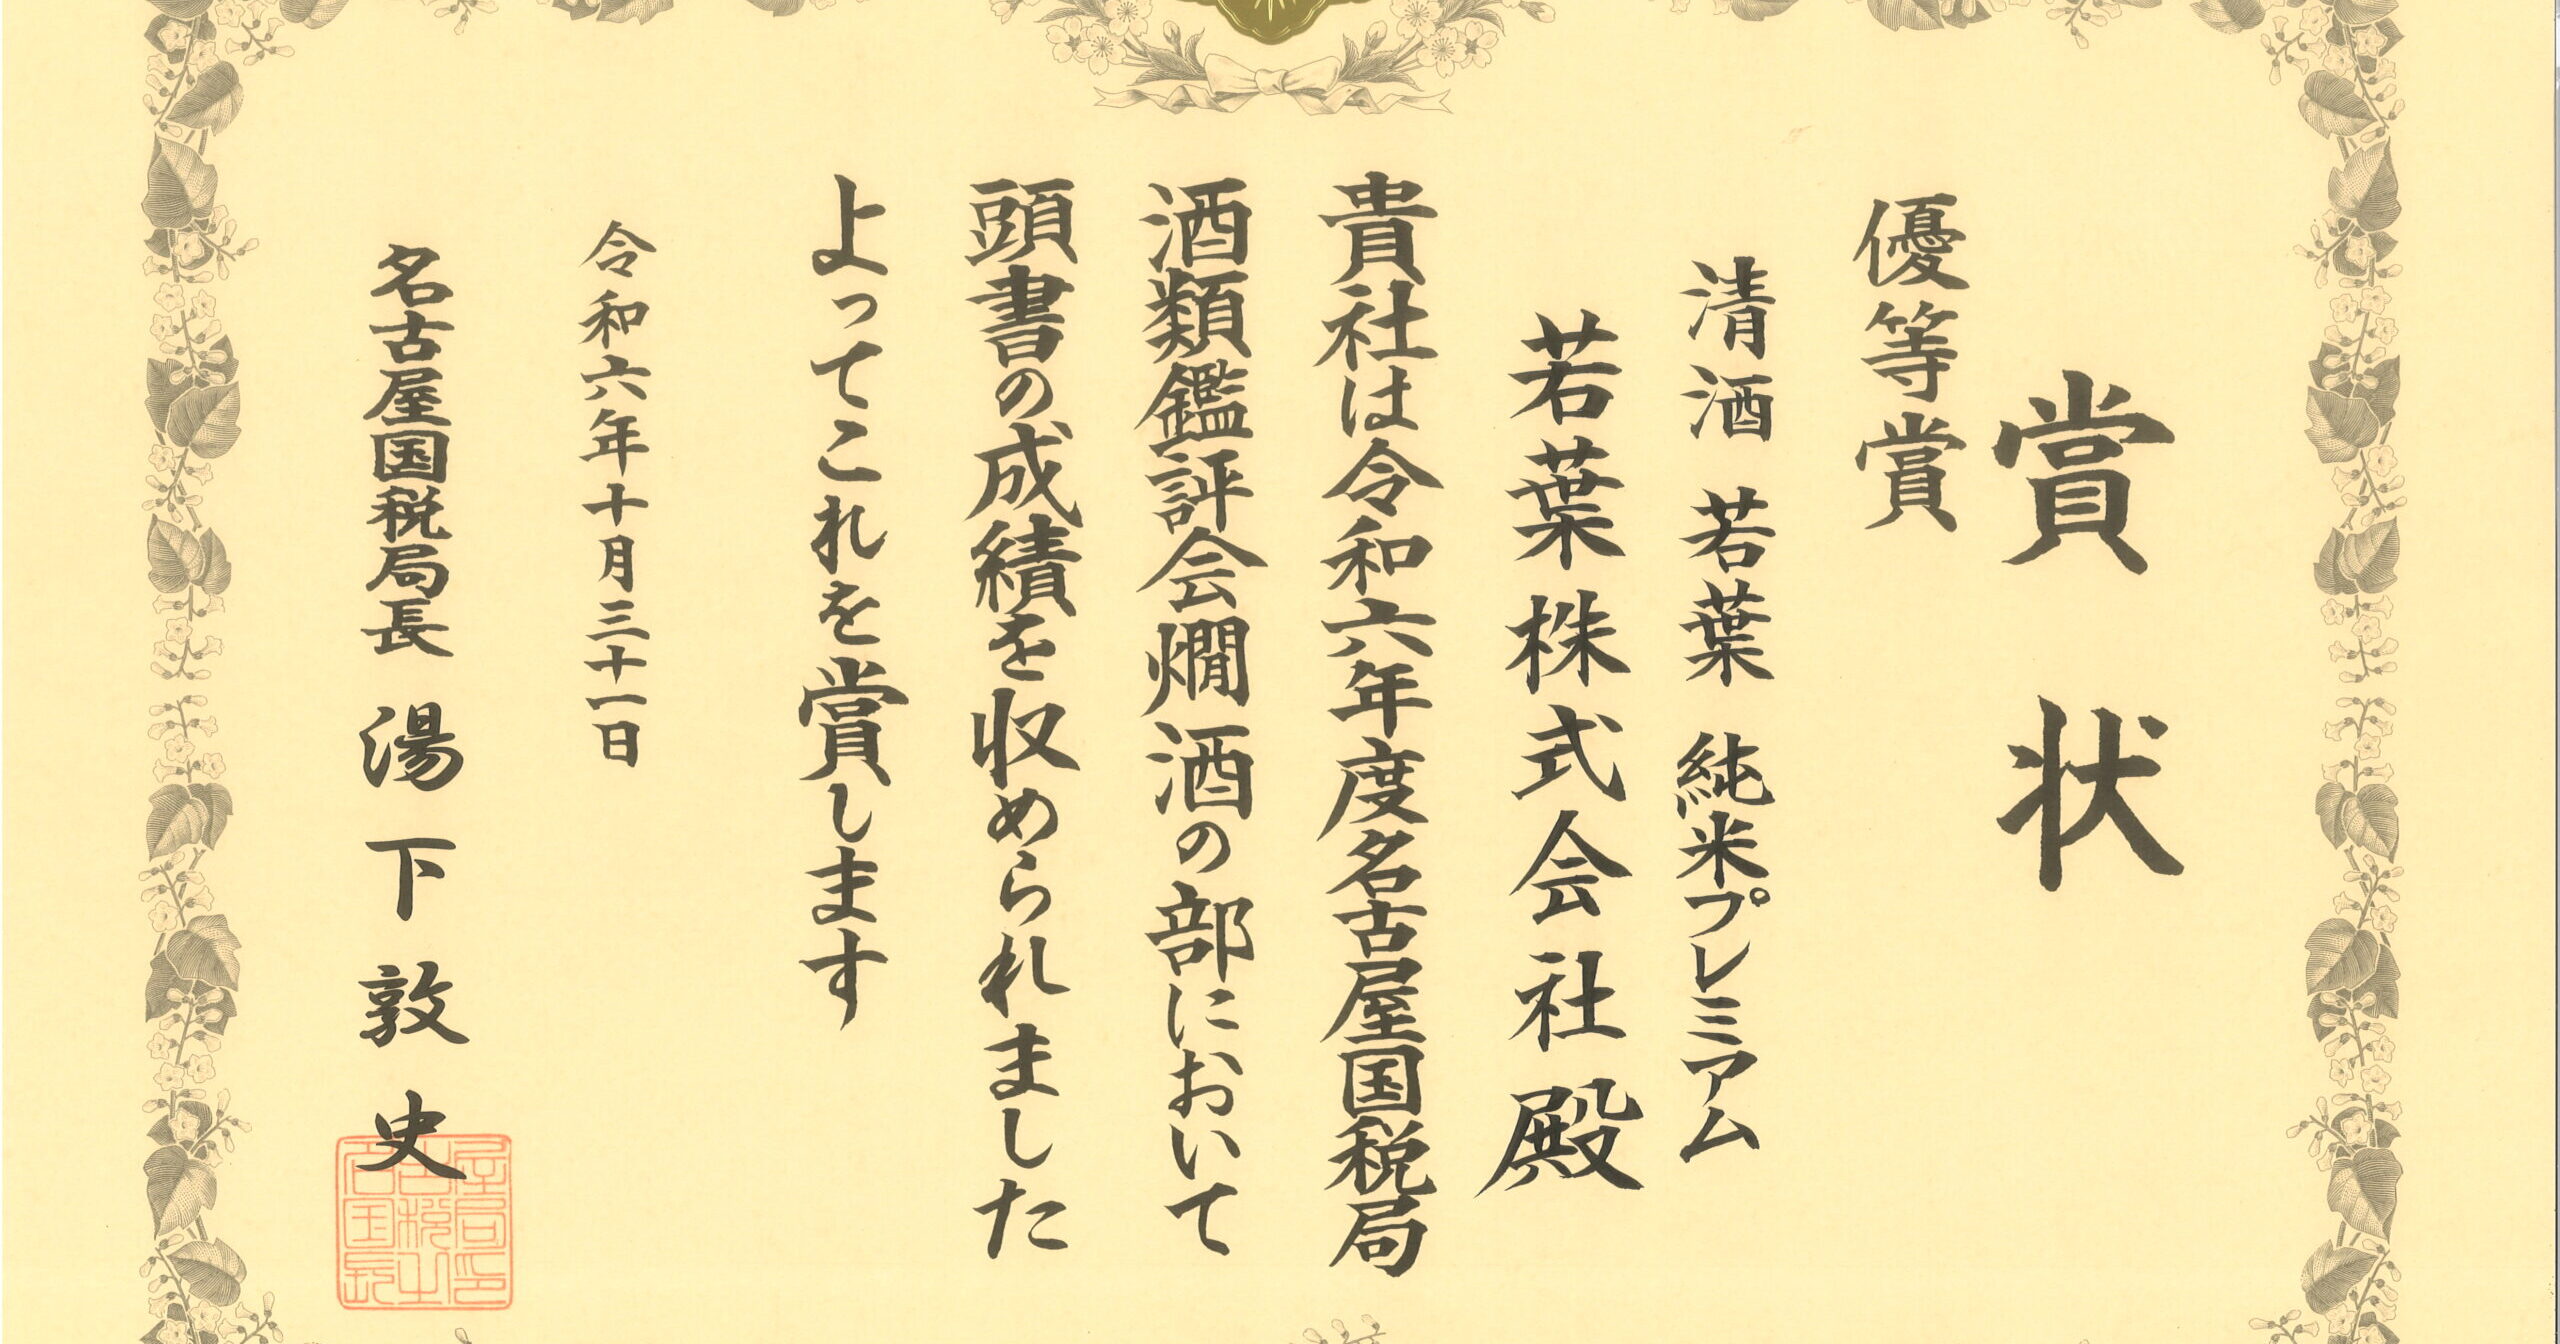 賞状
優等賞
清酒 若葉 純米プレミアム
若葉株式会社殿
貴社は令和六年度名古屋国税局
酒類鑑評会燗酒の部において
頭書の成績を収められました
よってこれを賞します
令和六年十月三十一日
名古屋国税局長 湯下敦史